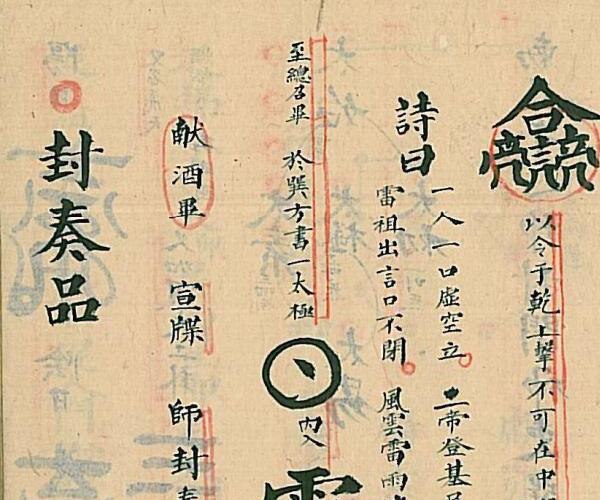 以令于乾上撃不可在中
詩曰
一人一口虛空立 二帝登基
雷祖出言口不閉 風雲雷雨
至總召畢 於巽方書一太極
內入
献酒畢 宣牒 師封奏
封奏品